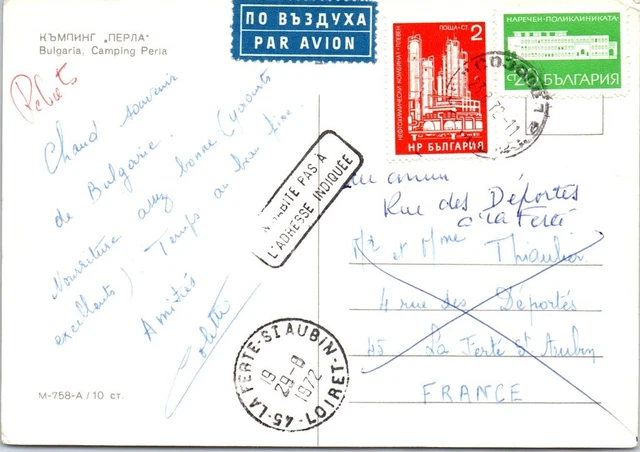 КЪМПИНГ „ПЕРЛА"
Bulgaria, Camping Perla
ПО ВЪЗДУХА
PAR AVION
ПОЩА·СТ. 2
НЕФТОХИМИЧЕСКИ КОМБИНАТ·ПЛЕВЕН
НР БЪЛГАРИЯ
НАРЕЧЕН·ПОЛИКЛИНИКАТА
2 БЪЛГАРИЯ
Rebuts
Chaud souvenir
de Bulgarie.
Nourriture assez bonne (yaourts
excellents). Temps au beau fixe.
Amitiés
Colette
N'HABITE PAS A
L'ADRESSE INDIQUÉE
inconnu
Rue des Déportés
à la Ferté
Mr et Mme
4 rue des Déportés
45 La Ferté St Aubin
FRANCE
45-LA FERTE-ST AUBIN-LOIRET
19
29-8
1972
М-758-А / 10 ст.